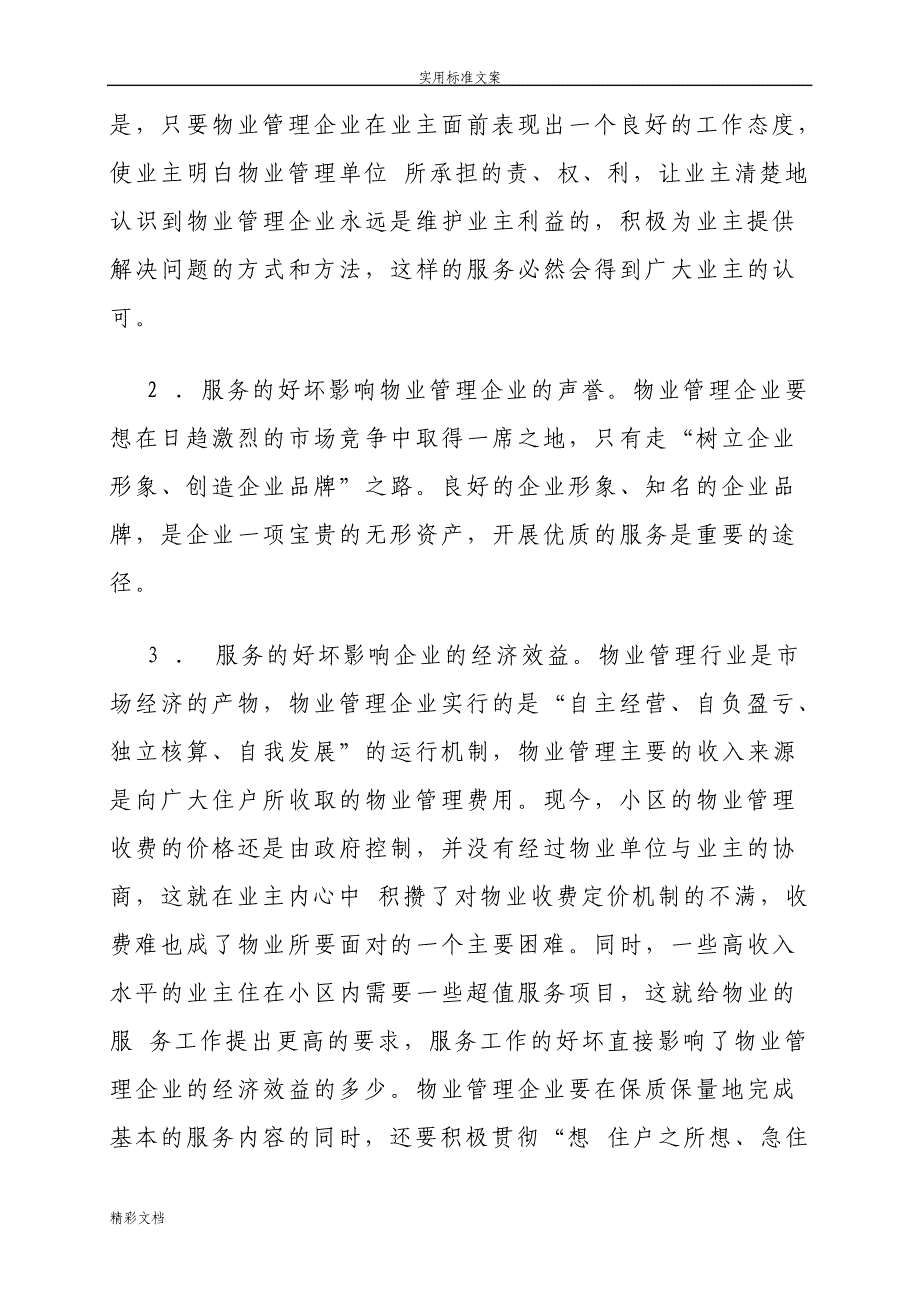 实用标准文案
是，只要物业管理企业在业主面前表现出一个良好的工作态度，
使业主明白物业管理单位 所承担的责、权、利，让业主清楚地
认识到物业管理企业永远是维护业主利益的，积极为业主提供
解决问题的方式和方法，这样的服务必然会得到广大业主的认
可。
2 ．服务的好坏影响物业管理企业的声誉。物业管理企业要
想在日趋激烈的市场竞争中取得一席之地，只有走“树立企业
形象、创造企业品牌”之路。良好的企业形象、知名的企业品
牌，是企业一项宝贵的无形资产，开展优质的服务是重要的途
径。
3 ． 服务的好坏影响企业的经济效益。物业管理行业是市
场经济的产物，物业管理企业实行的是“自主经营、自负盈亏、
独立核算、自我发展”的运行机制，物业管理主要的收入来源
是向广大住户所收取的物业管理费用。现今，小区的物业管理
收费的价格还是由政府控制，并没有经过物业单位与业主的协
商，这就在业主内心中 积攒了对物业收费定价机制的不满，收
费难也成了物业所要面对的一个主要困难。同时，一些高收入
水平的业主住在小区内需要一些超值服务项目，这就给物业的
服 务工作提出更高的要求，服务工作的好坏直接影响了物业管
理企业的经济效益的多少。物业管理企业要在保质保量地完成
基本的服务内容的同时，还要积极贯彻“想 住户之所想、急住
精彩文档